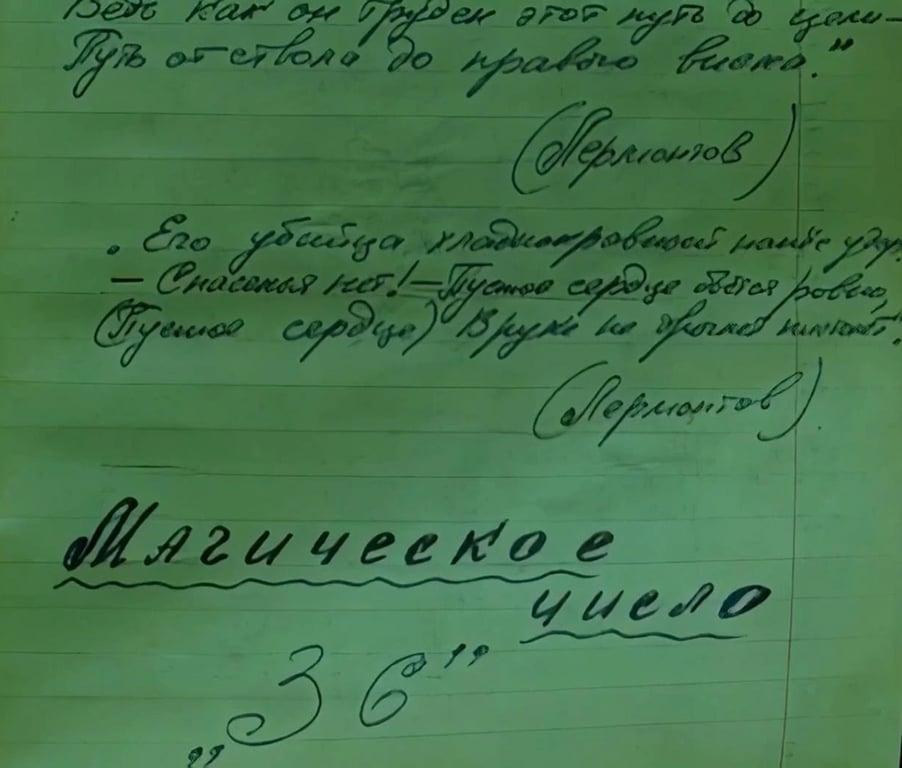 Ведь как он труден этот путь до цели –
Путь от ствола до правого виска."
(Лермонтов)
„Его убийца хладнокровно
– Спасенья нет! – Пустое сердце бьётся ровно,
(Пустое сердце) В руке не дрогнет пистолет."
(Лермонтов)
Магическое
число
„36"